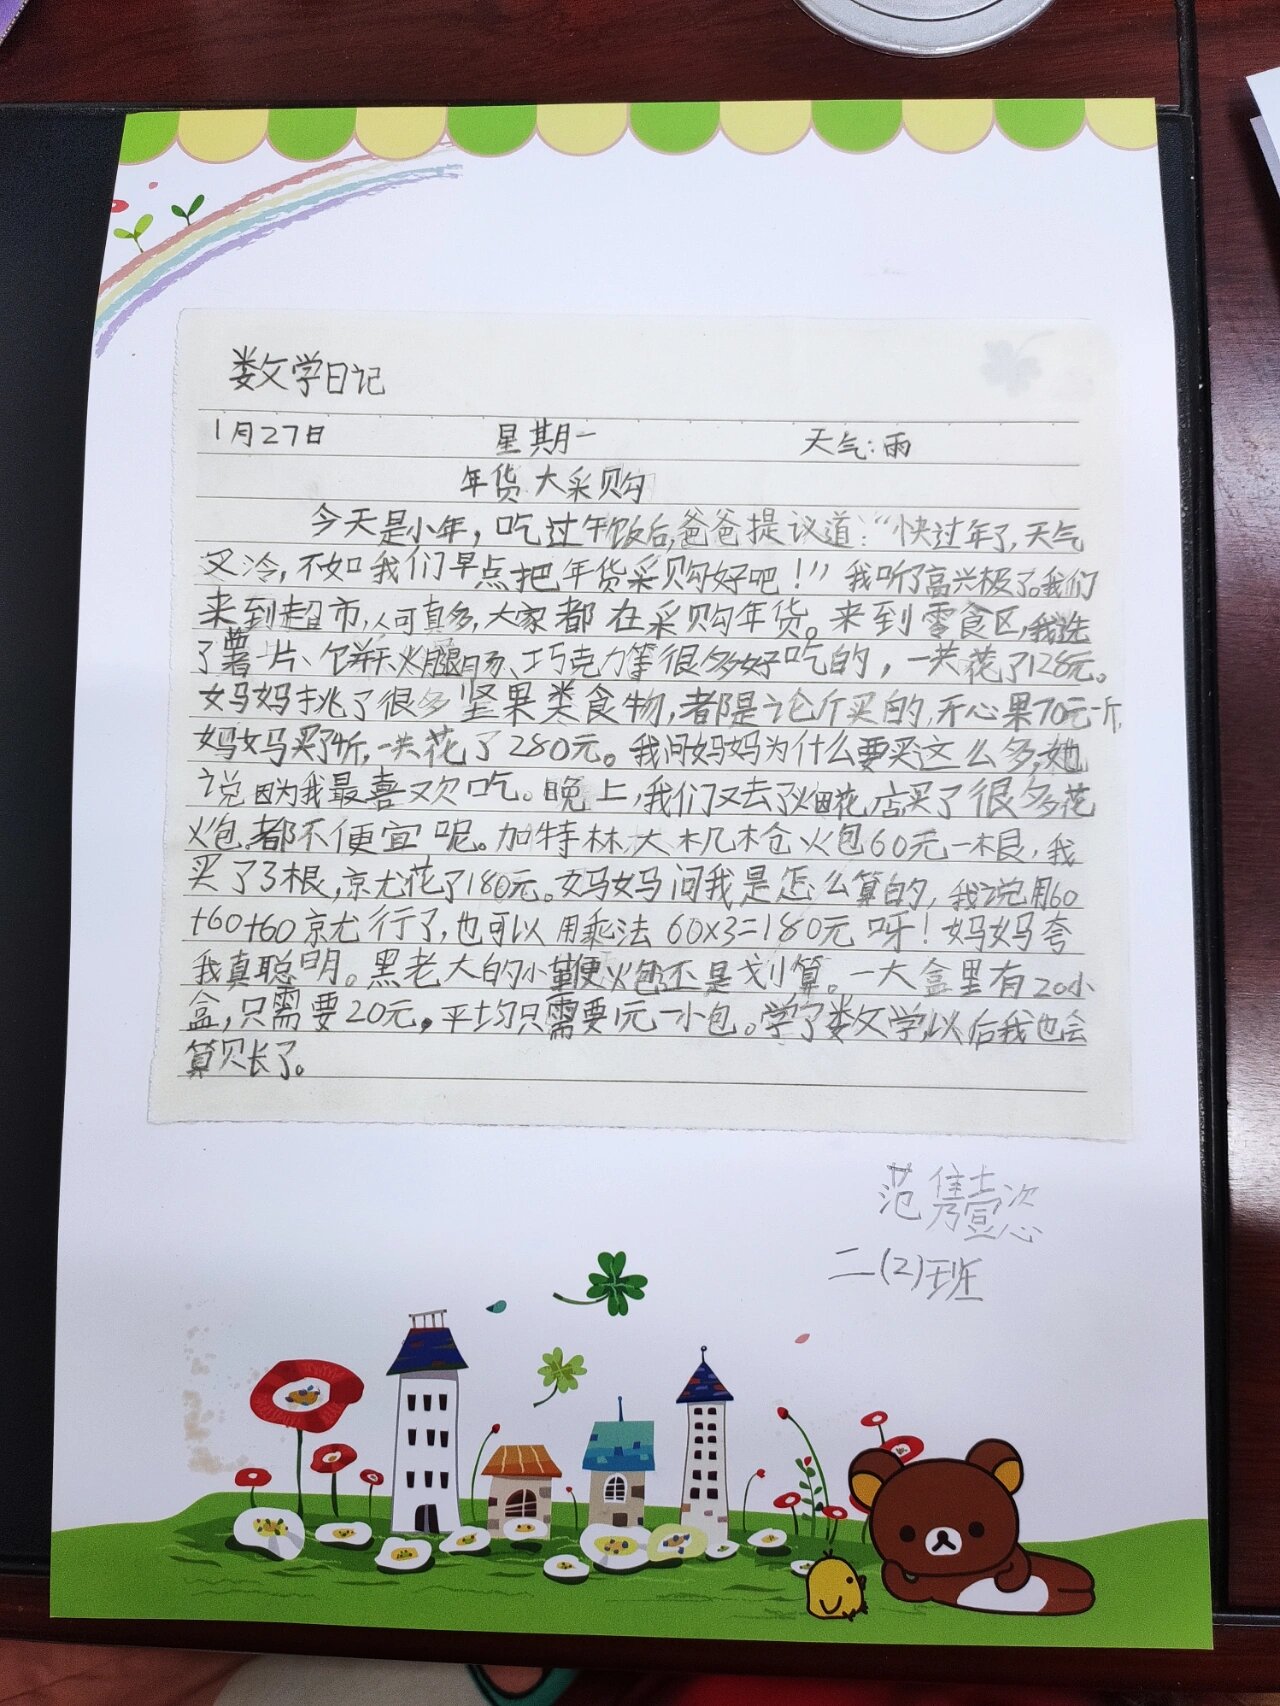 数学日记
1月27日 星期一 天气:雨
年货大采购
今天是小年，吃过午饭后，爸爸提议道：“快过年了，天气
又冷，不如我们早点把年货采购好吧！”我听了高兴极了。我们
来到超市，人可真多，大家都在采购年货。来到零食区，我选
了薯片、饼干、火腿肠、巧克力等很多好吃的，一共花了128元。
妈妈挑了很多坚果类食物，都是论斤买的，开心果70元一斤，
妈妈买了4斤，一共花了280元。我问妈妈为什么要买这么多，她
说因为我最喜欢吃。晚上，我们又去了烟花店，买了很多花
火包，都不便宜呢。加特林大机枪火包60元一根，我
买了3根，京尤花了180元。妈妈问我是怎么算的，我说用60
+60+60京尤行了，也可以用乘法60×3=180元呀！妈妈夸
我真聪明。黑老大的小鞭火包还是划算。一大盒里有20小
盒，只需要20元。平均只需要1元一小包。学了数学，以后我也会
算账了。
范 壹
二(2)班